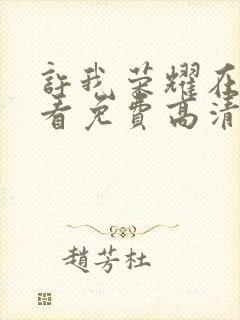 許我荣耀在
看免費高清
趙芳杜